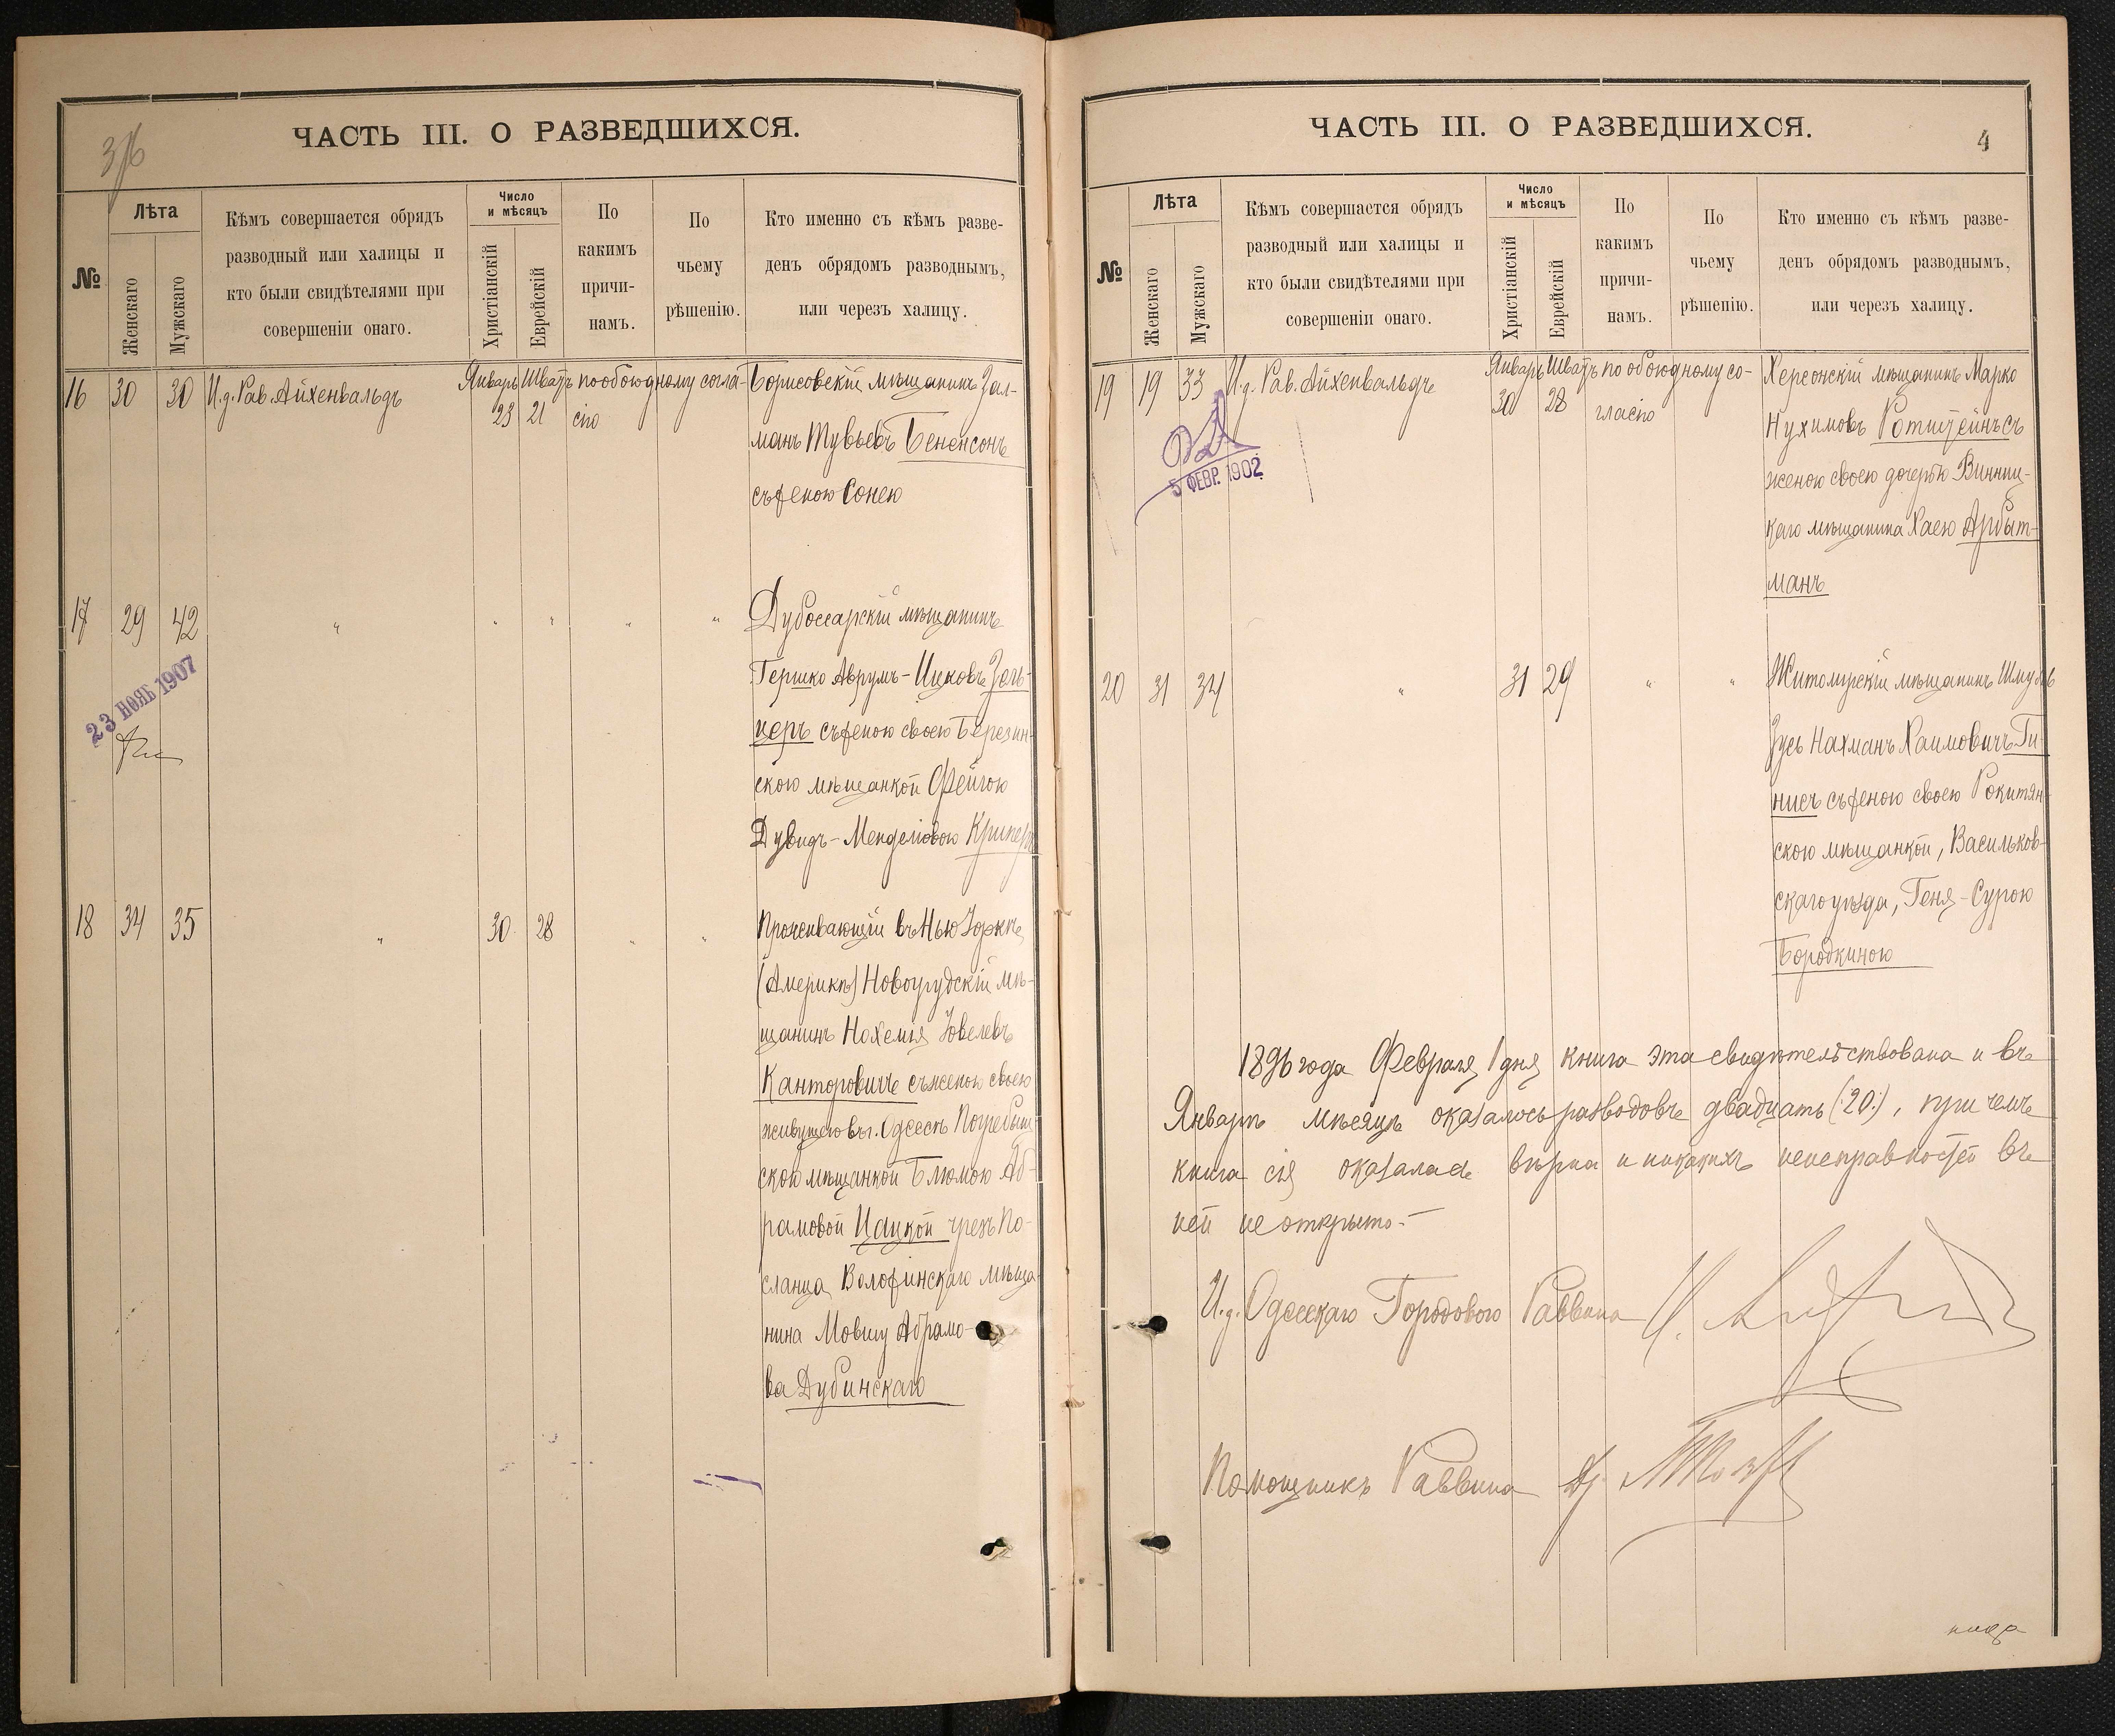 ЧАСТЬ III. О РАЗВЕДШИХСЯ.
№
Лѣта
Женскаго
Мужскаго
Кѣмъ совершается обрядъ
разводный или халицы и
кто были свидѣтелями при
совершеніи онаго.
Число
и мѣсяцъ
Христіанскій
Еврейскій
По
какимъ
причи-
намъ.
По
чьему
рѣшенію.
Кто именно съ кѣмъ разве-
денъ обрядомъ разводнымъ,
или черезъ халицу.
16 30 30 И.д. Рав. Айхенвальдъ Январь Шватъ по обоюдному согла- Борисовскій мѣщанинъ Зал-
23 21 сію
манъ Тувьевъ Бененсонъ
съ женою Сонею
17 29 42 " " " " " Дубоссарскій мѣщанинъ
Гершко Аврумъ-Ицковъ Зель-
церъ съ женою своею Березин-
скою мѣщанкой Фейгою
Дувидъ-Менделіовою
23 НОЯБ 1907
18 34 35 " 30 28 " " Проживающій въ Нью Іоркѣ
(Америкѣ) Новогрудскій мѣ-
щанинъ Нохемья Іовелевъ
Канторовичъ съ женою своею
живущею въ г. Одессѣ Погребыщ-
скою мѣщанкой Блюмою Аб-
рамовой Цацкой чрезъ по-
сланца Воложинскаго мѣща-
нина Мовшу Абрамо-
ва Дубинскаго
ЧАСТЬ III. О РАЗВЕДШИХСЯ.
4
№
Лѣта
Женскаго
Мужскаго
Кѣмъ совершается обрядъ
разводный или халицы и
кто были свидѣтелями при
совершеніи онаго.
Число
и мѣсяцъ
Христіанскій
Еврейскій
По
какимъ
причи-
намъ.
По
чьему
рѣшенію.
Кто именно съ кѣмъ разве-
денъ обрядомъ разводнымъ,
или черезъ халицу.
19 19 33 И.д. Рав. Айхенвальдъ Январь Шватъ по обоюдному со- Херсонскій мѣщанинъ Марко
30 28 гласію
Нухимовъ Ротштейнъ съ
женою своею дочерью Винниц-
каго мѣщанина Хаею Арбыт-
манъ
5 ФЕВР. 1902
20 31 34 " 31 29 " " Житомірскій мѣщанинъ Шмуль
Зусь Нахманъ Хаимовичъ Ги-
нисъ съ женою своею Рокитян-
скою мѣщанкой, Васильков-
скаго уѣзда, Геня-Сурою
Бородкиною
1896 года Февраля 1 дня книга эта свидѣтельствована и въ
Январѣ мѣсяцѣ оказалось разводовъ двадцать (20), при чемъ
книга сія оказалась вѣрна и никакихъ неисправностей въ
ней не открыто.-
И.д. Одесскаго Городового Раввина
Помощникъ Раввина